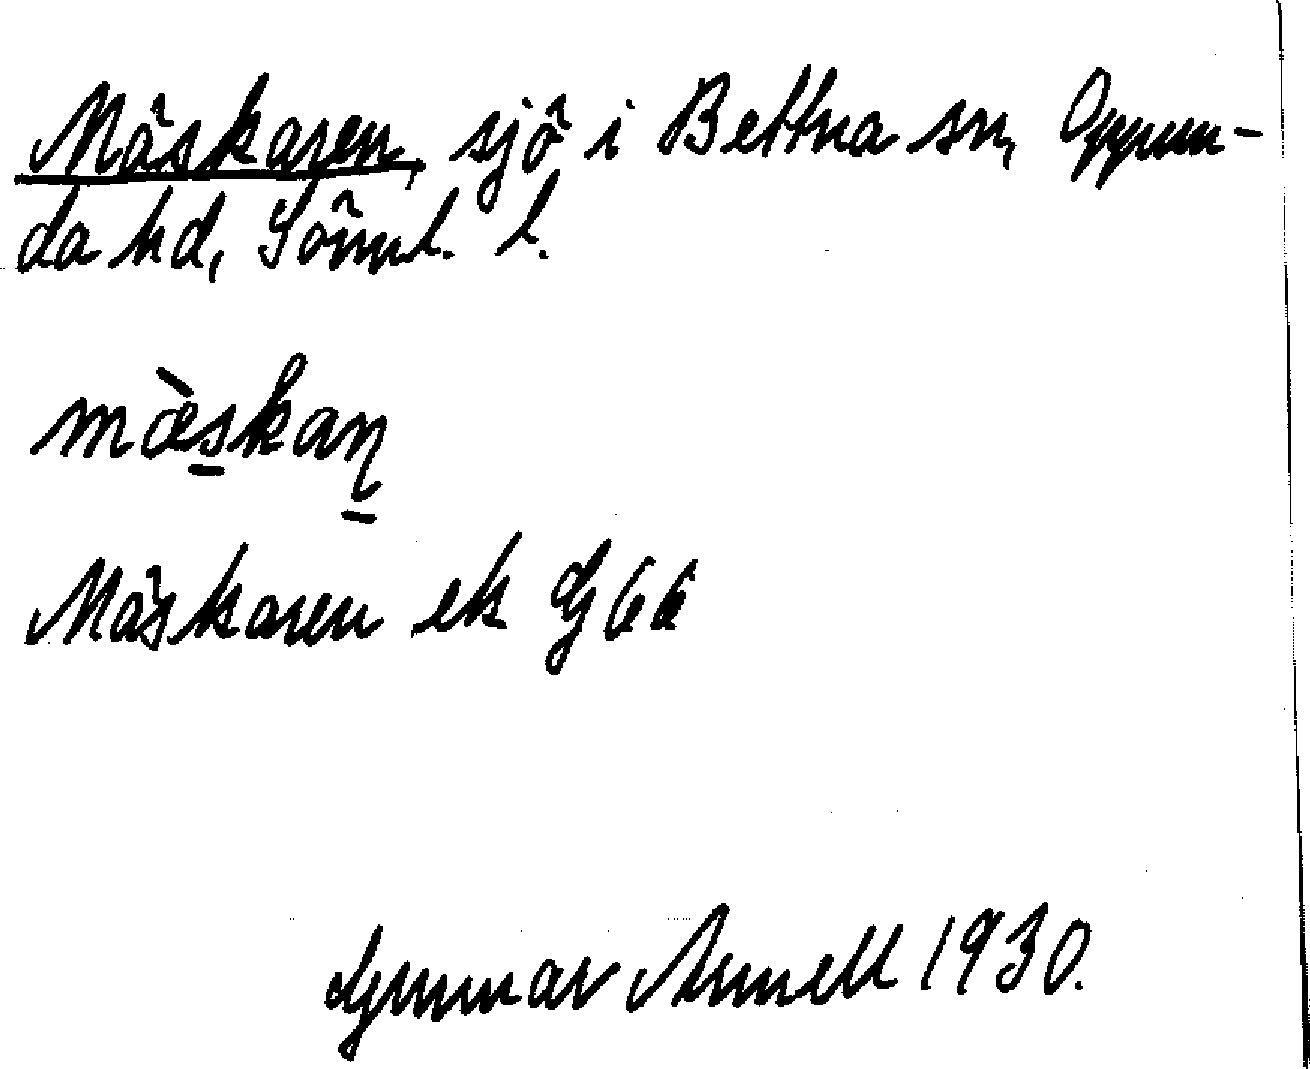 Mäskaren, sjö i Bettna sn, Oppun-
da hd, Sörml. l.
mæ̀skaɳ
Mäskaren ek G 66
Gunnar Arnell 1930.